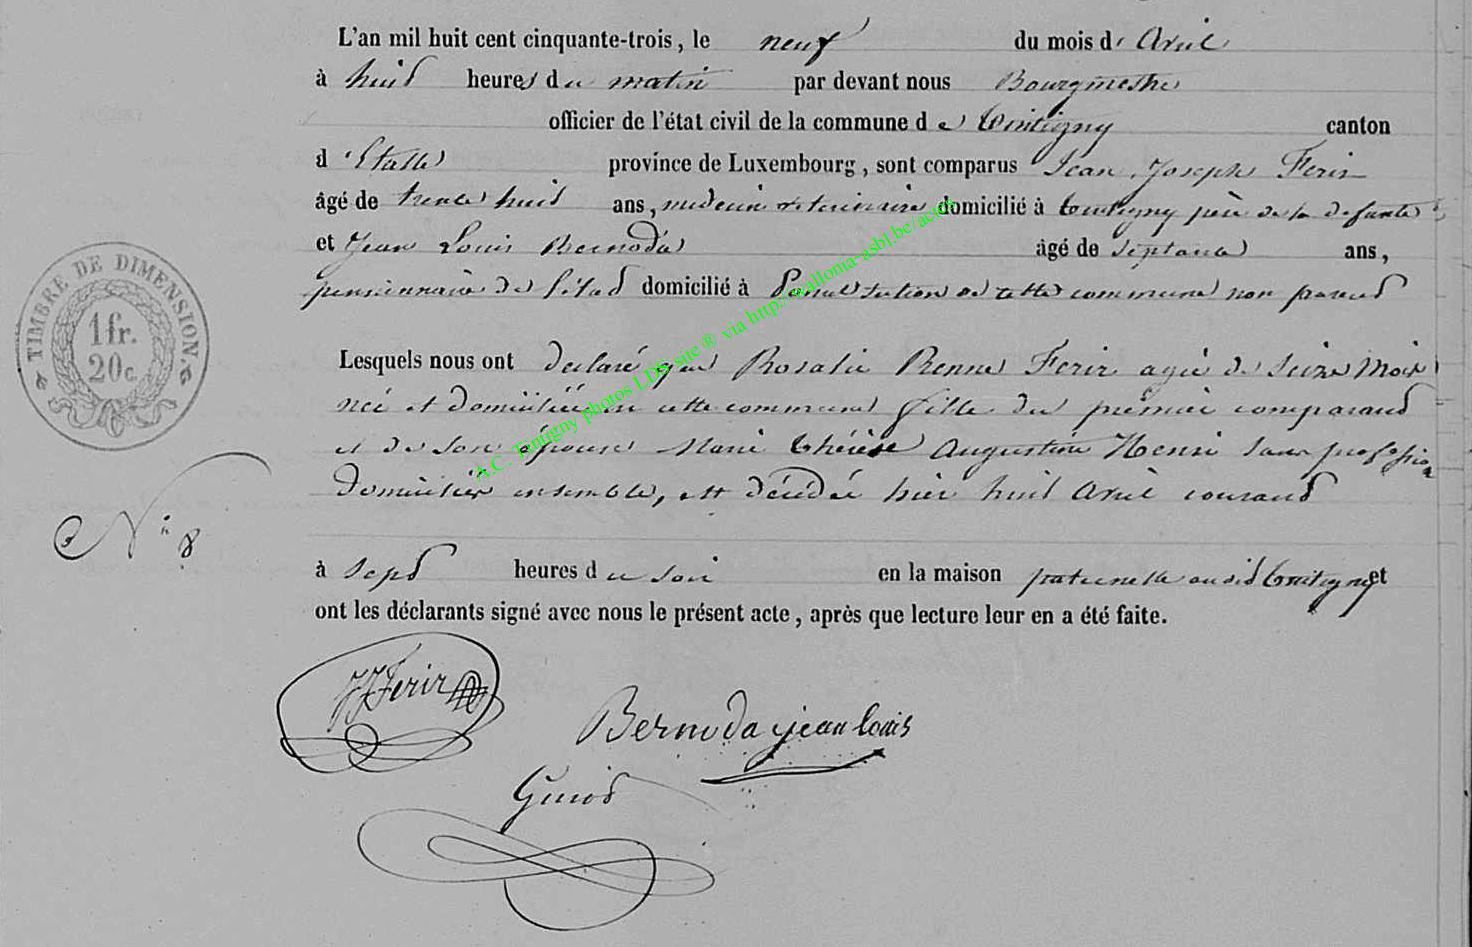 L'an mil huit cent cinquante-trois, le neuf du mois d' Avril
à huit heures du matin par devant nous Bourgmestre
officier de l'état civil de la commune de Tintigny canton
d'Etalle province de Luxembourg, sont comparus Jean Joseph Ferir
âgé de trente huit ans, medecin veterinaire domicilié à Tintigny père de la defunte
et Jean Louis Bernoda âgé de septante ans,
pensionnaire de l'état domicilié à section de cette commune non parent
Lesquels nous ont declaré que Rosalie Ferir agée de seize Mois
née et domiciliée en cette commune fille du premier comparant
et de son épouse Marie Thérèse Augustine Henri sans profession
domiciliés ensemble, est décédée hier huit Avril courant
N° 8
à sept heures du soir en la maison paternelle audit Tintigny et
ont les déclarants signé avec nous le présent acte, après que lecture leur en a été faite.
JJFerir
Bernoda jean louis
TIMBRE DE DIMENSION.
1 fr.
20c
A.C. Tintigny photos LDS site ® via http://wallonia-asbl.be/actes